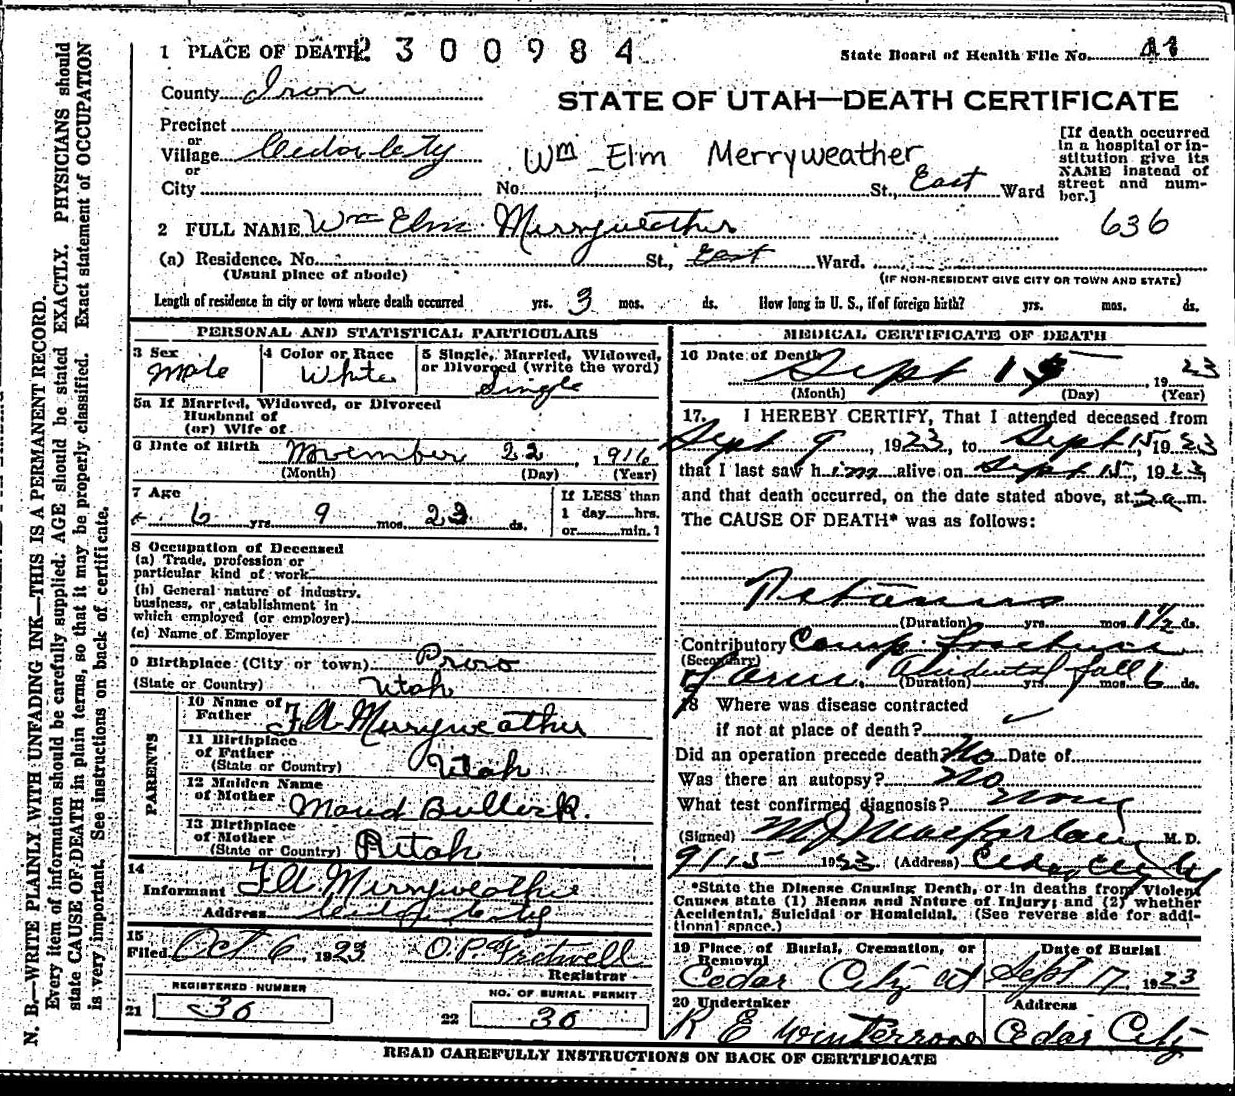 N. B.—WRITE PLAINLY WITH UNFADING INK—THIS IS A PERMANENT RECORD.
Every item of information should be carefully supplied. AGE should be stated EXACTLY. PHYSICIANS should
state CAUSE OF DEATH in plain terms, so that it may be properly classified. Exact statement of OCCUPATION
is very important. See instructions on back of certificate.
1 PLACE OF DEATH 2300984
State Board of Health File No.
County Iron
STATE OF UTAH—DEATH CERTIFICATE
Precinct
or
Village Cedar City
or
City
Wm Elm Merryweather
No. St., East Ward
[If death occurred
in a hospital or in-
stitution give its
NAME instead of
street and num-
ber.]
2 FULL NAME Wm Elm Merryweather
636
(a) Residence. No. St., East Ward.
(Usual place of abode)
(IF NON-RESIDENT GIVE CITY OR TOWN AND STATE)
Length of residence in city or town where death occurred yrs. 3 mos. ds. How long in U. S., if of foreign birth? yrs. mos. ds.
PERSONAL AND STATISTICAL PARTICULARS
3 Sex Male
4 Color or Race White
5 Single, Married, Widowed,
or Divorced (write the word)
Single
5a If Married, Widowed, or Divorced
Husband of
(or) Wife of
6 Date of Birth November 22, 1916
(Month) (Day) (Year)
7 Age
6 yrs. 9 mos. 23 ds.
If LESS than
1 day hrs.
or min.?
8 Occupation of Deceased
(a) Trade, profession or
particular kind of work
(b) General nature of industry,
business, or establishment in
which employed (or employer)
(c) Name of Employer
9 Birthplace (City or town) Provo
(State or Country) Utah
PARENTS
10 Name of
Father F A Merryweather
11 Birthplace
of Father
(State or Country) Utah
12 Maiden Name
of Mother Maud Bullock.
13 Birthplace
of Mother
(State or Country) Utah
14
Informant F A Merryweather
Address Cedar City
15
Filed Oct 6 1923 O. P. Fretwell
Registrar
REGISTERED NUMBER
21 36
NO. OF BURIAL PERMIT
22 36
MEDICAL CERTIFICATE OF DEATH
16 Date of Death Sept 15, 1923
(Month) (Day) (Year)
17. I HEREBY CERTIFY, That I attended deceased from
Sept 9, 1923, to Sept 15, 1923
that I last saw him alive on Sept 15, 1923,
and that death occurred, on the date stated above, at a m.
The CAUSE OF DEATH* was as follows:
Tetanus
(Duration) yrs. mos. 1 1/2 ds.
Contributory Comp. Fracture
(Secondary)
of arm. Accidental fall
(Duration) yrs. mos. 6 ds.
18 Where was disease contracted
if not at place of death?
Did an operation precede death? No Date of
Was there an autopsy? No
What test confirmed diagnosis? None
(Signed) M J Macfarlane M. D.
9/15 1923 (Address) Cedar City U
*State the Disease Causing Death, or in deaths from Violent
Causes state (1) Means and Nature of Injury; and (2) whether
Accidental, Suicidal or Homicidal. (See reverse side for addi-
tional space.)
19 Place of Burial, Cremation, or
Removal
Cedar City Ut
Date of Burial
Sept 17 1923
20 Undertaker
R E Winterrose
Address
Cedar City
READ CAREFULLY INSTRUCTIONS ON BACK OF CERTIFICATE